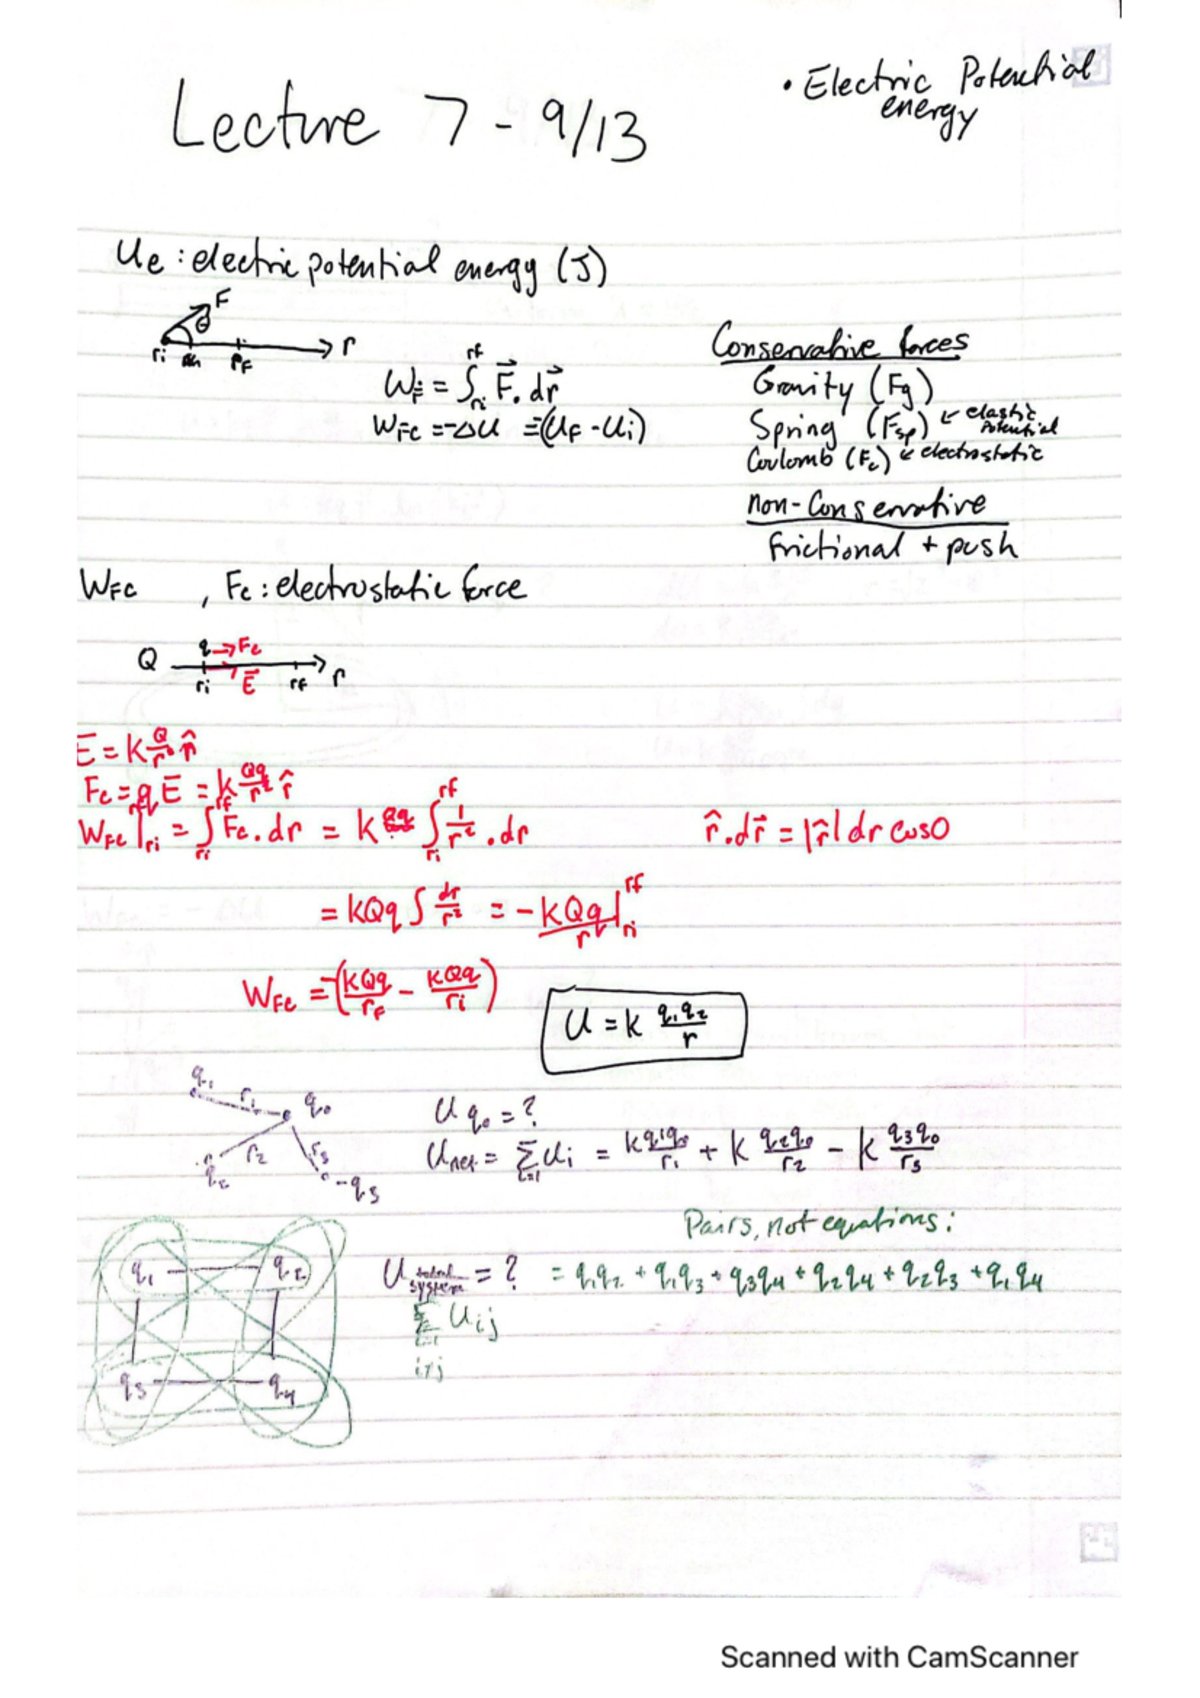 Lecture 7 - 9/13
• Electric Potential
energy
Ue : electric potential energy (J)
F
θ
ri rF r
W_F = ∫_ri^rf F⃗ . dr⃗
W_FC = -ΔU = -(U_F - U_i)
Conservative forces
Gravity (Fg)
Spring (Fsp) ← elastic Potential
Coulomb (Fc) ← electrostatic
non-Conservative
frictional + push
W_FC , Fc : electrostatic force
Q q → Fc
ri E⃗ rf r
E = k Q/r² r̂
Fc = qE = k Qq/r² r̂
W_FC |_ri^rf = ∫_ri^rf Fc . dr = k Qq ∫_ri^rf 1/r² . dr
r̂ . dr⃗ = |r̂| dr cos0
= kQq ∫ dr/r² = - kQq/r |_ri^rf
W_FC = -(kQq/rF - kQq/ri)
U = k q1q2/r
q1 r1 q0
r2 r3
q2 -q3
U q0 = ?
Unet = Σ_i=1 Ui = kq1q0/r1 + k q2q0/r2 - k q3q0/r3
Pairs, not equations:
q1 q2
q3 q4
U total system = ? = q1q2 + q1q3 + q3q4 + q2q4 + q2q3 + q1q4
Σ_i=1 Uij
i≠j
Scanned with CamScanner